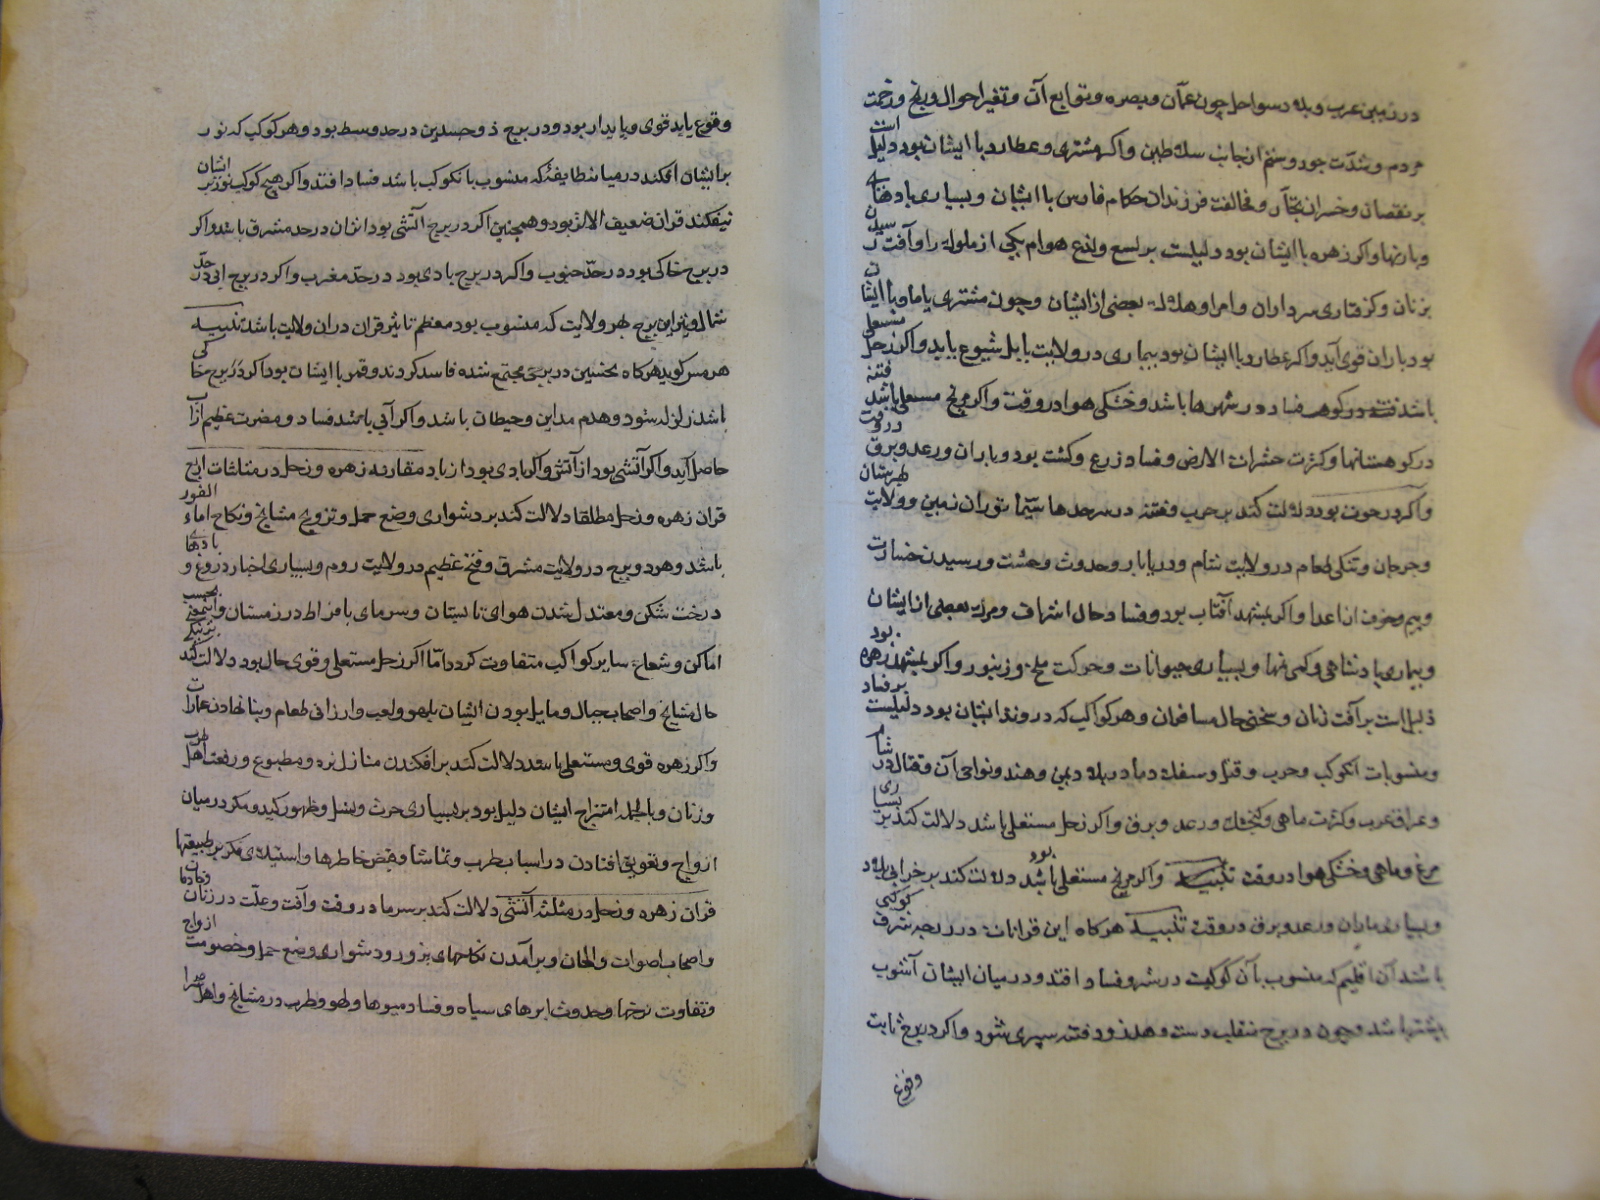 در زمین عرب و بلاد سواحل چون عمان و بصره و توابع آن و تغیر احوال و رنج و زحمت
مردم و شدت جور و ستم از جانب سلاطین و اگر مشتری و عطارد با ایشان بود دلیل است
بر نقصان و خسران تجار و مخالفت فرزندان حکام فارس با ایشان و بسیاری بادهای
و بارانها و اگر زهره با ایشان بود دلیلست بر لسع ولدغ هوام یکی از ملوک را و آفت رسیدن
بزنان و گرفتاری سرداران و امرا و هلاک بعضی از ایشان و چون مشتری یا ماه با ایشان
بود باران قوی آید و اگر عطارد با ایشان بود بیماری در ولایت بابل شیوع یابد و اگر زحل مستعلی
باشد فتنه در کوه و فساد در شهرها باشد و خشکی هوا در وقت و اگر مریخ مستعلی باشد فتنه
در کوهستانها و کثرت حشرات الارض و فساد زرع و کشت بود و باران و رعد و برق در وقت
و اگر در حوت بود دلالت کند بر حرب و فتنه در سرحدها سیما توران زمین و ولایت طبرستان
و جرجان و تنکی طعام در ولایت شام و دریابار و حدوث وحشت و رسیدن خسارت
و بیم و خوف از اعدا و اگر بمشهد آفتاب بود و فساد حال اشراف و مرک بعضی از ایشان
و بیماری پادشاهی و کمی نمها و بسیاری حیوانات و حرکت ملخ و زنبور و اگر بمشهد زهره بود
دلیل است بر آفت زنان و سختی حال مسافران و هر کواکب که در وند ایشان بود دلیلست بر فساد
و منسوبات آنکوکب و حرب و قتل و سفک دما در بلاد یمن و هند و نواحی آن و قتال در شام
و عراق عرب و کثرت ماهی و گنجشک و رعد و برق و اگر زحل مستعلی باشد دلالت کند بر بسیاری
مرغ و ماهی و خشکی هوا در وقت و اگر مریخ مستعلی باشد بود دلالت کند بر خرابی بلاد
و بسیاری باران و رعد و برق در وقت تنبیه هرگاه این قرانات در درجه شرف کوکبی
باشد آن اقلیم که منسوب بآن کوکبست در شر و فساد افتد و در میان ایشان آشوب
بیشتر باشد و چون در برج منقلب دست دهد زود فتنه سپری شود و اگر در برج ثابت
وقوع
وقوع یابد قوی و پایدار بود و در برج ذوجسدین در حد وسط بود و هر کوکب که نور
بر ایشان افکند در میان طایفه که منسوب با نکوکب باشد فساد افتد و اگر هیچ کوکب نور بر ایشان
نیفکند قران ضعیف الاثر بود و همچنین اگر در برج آتشی بود اثر آن در حد مشرق باشد و اگر
در برج خاکی بود در حد جنوب و اگر در برج بادی بود در حد مغرب و اگر در برج آبی در حد
شمال و نیز این برج بهر ولایت که منسوب بود معظم تاثیر قران در ان ولایت باشد تنبیه
هرمس گوید هرگاه نحسین در برجی مجتمع شده فاسد گردند و قمر با ایشان بود اگر در برج خاکی
باشد زلزله شود و هدم مداین و حیطان باشد و اگر آبی باشد فساد و مضرت عظیم از آب
حاصل آید و اگر آتشی بود از آتش و اگر بادی بود از باد مقارنه زهره و زحل در مثلثات
قران زهره و زحل مطلقا دلالت کند بر دشواری وضع حمل و تزویج مشایخ و نکاح اماء الفور
باشد و هر دو برج در ولایت مشرق و فتح عظیم در ولایت روم و بسیاری اخبار دروغ و بادهای
درخت شکن و معتدل شدن هوای تابستان و سرمای بافراط در زمستان و بحسب
اماکن و شعاع سایر کواکب متفاوت گردد اما اگر زحل مستعلی و قوی حال بود دلالت کند بر نیکی
حال مشایخ و اصحاب جبال و مایل بودن ایشان بلهو و لعب و ارزانی طعام و بنا نهادن عمارات
و اگر زهره قوی و مستعلی باشد دلالت کند بر افکندن منازل نزه و مطبوع و رفعت اهل طرب
و زنان و بالجمله امتزاج ایشان دلیل بود بر بسیاری حرث و نسل و ظهور کید و مکر در میان
ازواج و تعویق افتادن در اسباب طرب و تماشا و قبض خاطرها و استیلای فکر بر طبیعتها
قران زهره و زحل در مثلثه آتشی دلالت کند بر سرما در وقت و آفت و علت در زنان
و اصحاب اصوات و الحان و برآمدن نکاحهای بزور و دشواری وضع حمل و خصومت ازواج
و تفاوت نرخها و حدوث ابرهای سیاه و فساد میوها و لهو و طرب در مشایخ و اهل